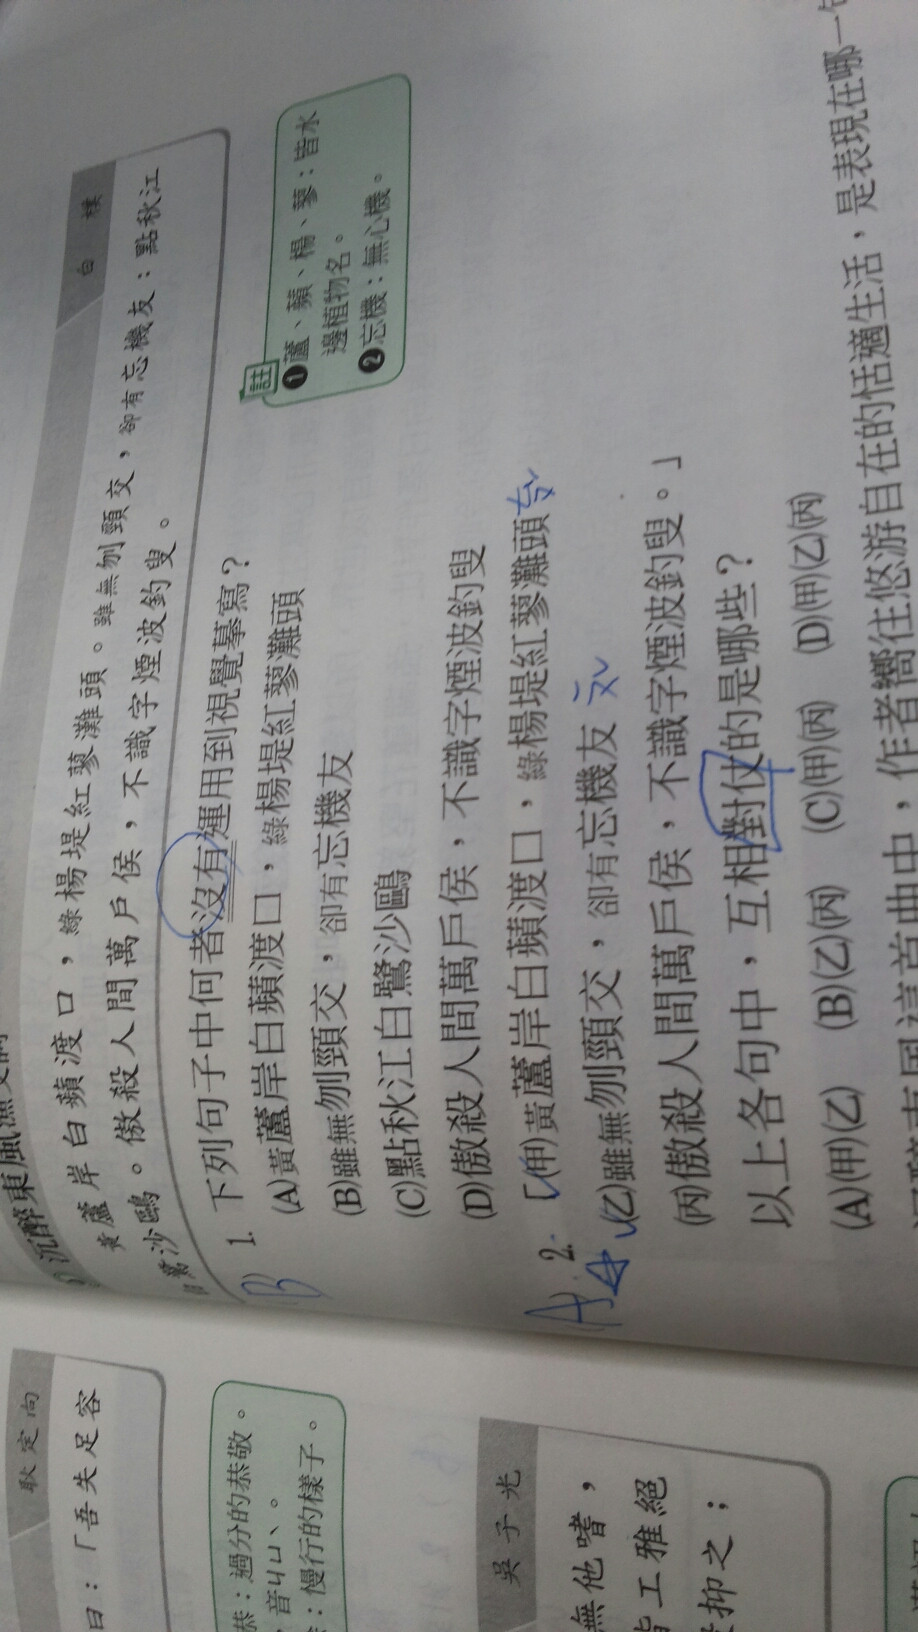 沉醉東風漁父詞
白樸
黃蘆岸白蘋渡口，綠楊堤紅蓼灘頭。雖無刎頸交，卻有忘機友：點秋江
白鷺沙鷗。傲殺人間萬戶侯，不識字煙波釣叟。
註
❶蘆、蘋、楊、蓼：皆水
邊植物名。
❷忘機：無心機。
B
1. 下列句子中何者沒有運用到視覺摹寫？
(A)黃蘆岸白蘋渡口，綠楊堤紅蓼灘頭
(B)雖無刎頸交，卻有忘機友
(C)點秋江白鷺沙鷗
(D)傲殺人間萬戶侯，不識字煙波釣叟
A
2. 「(甲)黃蘆岸白蘋渡口，綠楊堤紅蓼灘頭
(乙)雖無刎頸交，卻有忘機友
(丙)傲殺人間萬戶侯，不識字煙波釣叟。」
以上各句中，互相對仗的是哪些？
(A)(甲)(乙) (B)(乙)(丙) (C)(甲)(丙) (D)(甲)(乙)(丙)
這首曲中，作者嚮往悠游自在的恬適生活，是表現在哪一句
耿定向
曰：「吾失足容
恭：過分的恭敬。
音ㄐㄩˋ。
：慢行的樣子。
吳子光
無他嗜，
皆工雅絕
抑之；